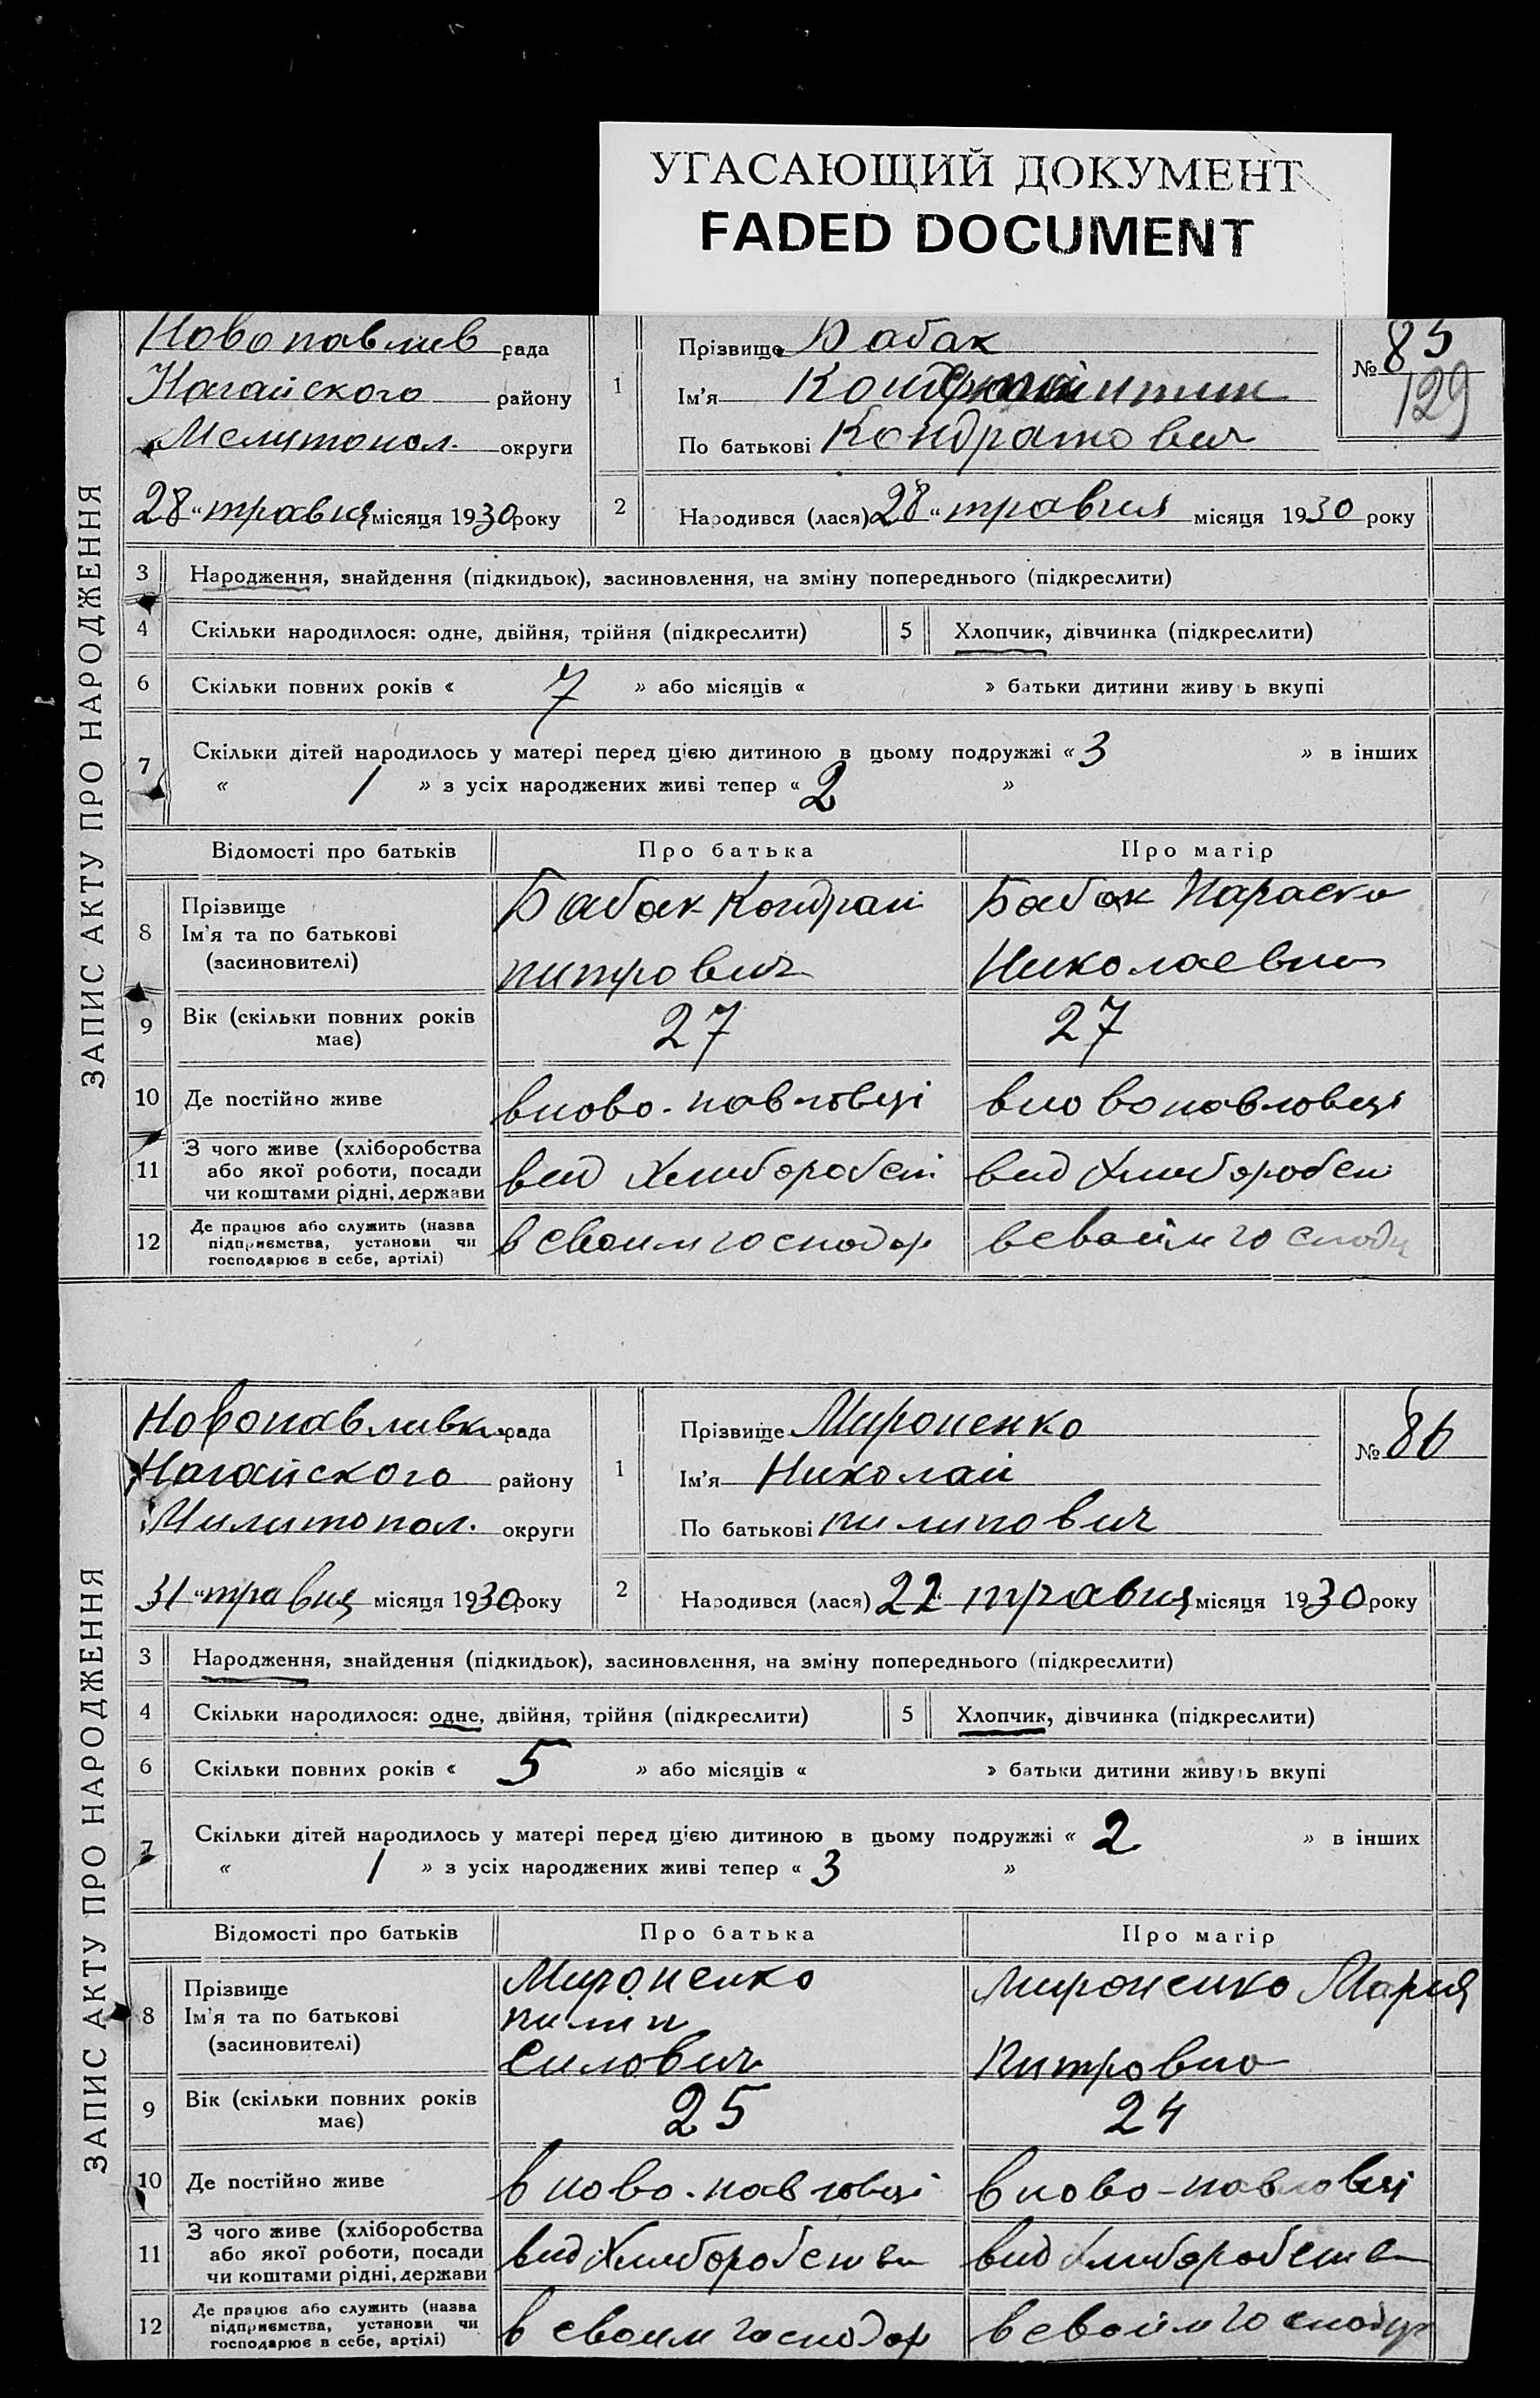 УГАСАЮЩИЙ ДОКУМЕНТ
FADED DOCUMENT
ЗАПИС АКТУ ПРО НАРОДЖЕННЯ
Новопавлив рада
Нагайского району
Мелитопол. округи
28 “ травня місяця 1930 року
1
Прізвище Бабак
Ім'я
По батькові Кондратович
№ 85
129
2
Народився (лася) 28 “ травня місяця 1930 року
3 Народження, знайдення (підкидьок), засиновлення, на зміну попереднього (підкреслити)
4 Скільки народилося: одне, двійня, трійня (підкреслити) 5 Хлопчик, дівчинка (підкреслити)
6 Скільки повних років « 7 » або місяців « » батьки дитини живу ь вкупі
7 Скільки дітей народилось у матері перед цією дитиною в цьому подружжі « 3 » в інших
« 1 » з усіх народжених живі тепер « 2 »
Відомості про батьків Про батька Про матір
8 Прізвище Ім'я та по батькові (засиновителі)
Бабак Кондрат
питрович
Бабак Параска
Николаевна
9 Вік (скільки повних років має) 27 27
10 Де постійно живе вново-павловці вновопавловці
11 З чого живе (хліборобства або якої роботи, посади чи коштами рідні, держави вид Хлиборобст вид Хлиборобст
12 Де працює або служить (назва підприємства, установи чи господарює в себе, артілі) в своим господар в своїм господ
ЗАПИС АКТУ ПРО НАРОДЖЕННЯ
Новопавливка рада
Нагайского району
Милитопол. округи
31 “ травня місяця 1930 року
1
Прізвище Мироненко
Ім'я Николай
По батькові пилипович
№ 86
2
Народився (лася) 22 “ травня місяця 1930 року
3 Народження, знайдення (підкидьок), засиновлення, на зміну попереднього (підкреслити)
4 Скільки народилося: одне, двійня, трійня (підкреслити) 5 Хлопчик, дівчинка (підкреслити)
6 Скільки повних років « 5 » або місяців « » батьки дитини живуь вкупі
7 Скільки дітей народилось у матері перед цією дитиною в цьому подружжі « 2 » в інших
« 1 » з усіх народжених живі тепер « 3 »
Відомості про батьків Про батька Про матір
8 Прізвище Ім'я та по батькові (засиновителі)
Мироненко
пилип
Силович
Мироненко Мария
Питровна
9 Вік (скільки повних років має) 25 24
10 Де постійно живе в ново-павловці в ново-павловці
11 З чого живе (хліборобства або якої роботи, посади чи коштами рідні, держави вид Хлиборобства вид Хлиборобства
12 Де працює або служить (назва підприємства, установи чи господарює в себе, артілі) в своим господар в своїм господар